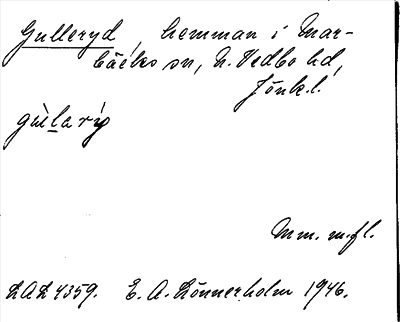 Gulleryd, hemman i Mar-
bäcks sn, N. Vedbo hd,
Jönk.l.
gùlarý
Mm. m.fl.
LAL 4359. E. A. Lönnerholm 1946.